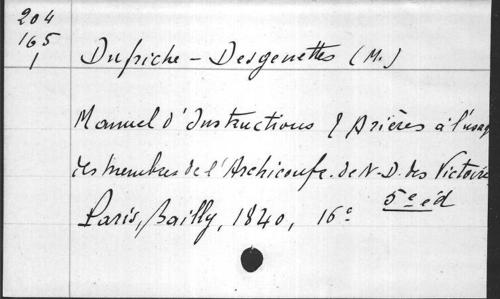 204
165
1
Dufriche - Desgenettes (M.)
Manuel d'Instructions & prières à l'usag
des membres de l'Archiconfr. de N.-D. des Victoire
Paris, Bailly, 1840, 16°
5e éd